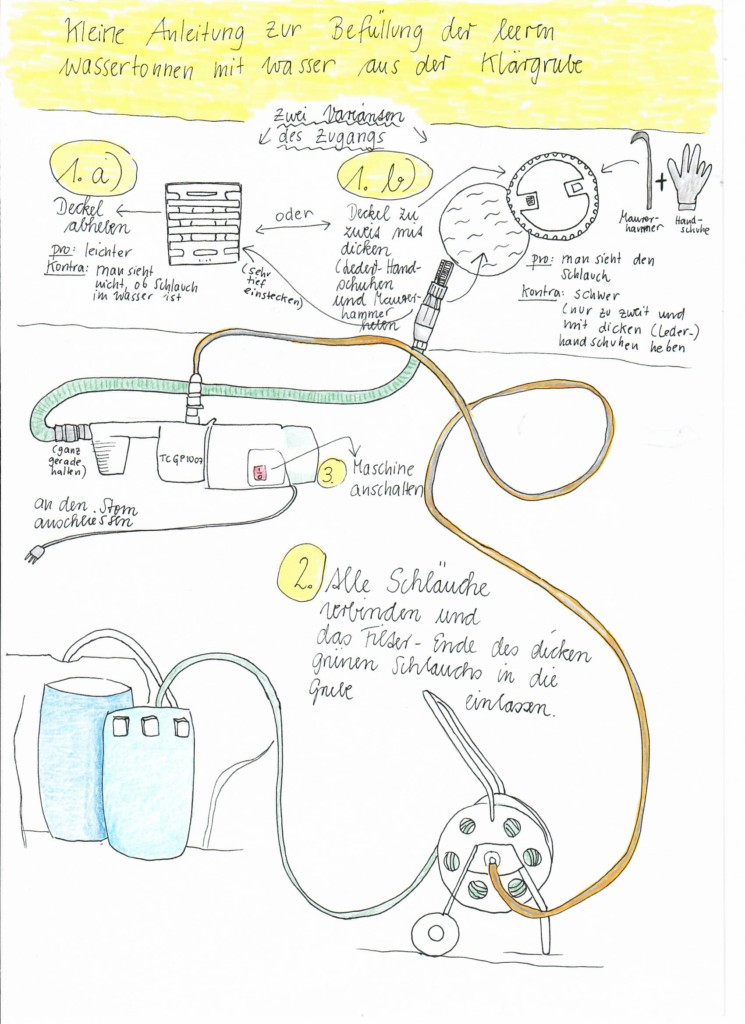 Kleine Anleitung zur Befüllung der leeren
Wassertonnen mit Wasser aus der Klärgrube
zwei Varianten
des Zugangs
1. a)
Deckel
abheben
pro: leichter
Kontra: man sieht
nicht, ob Schlauch
im Wasser ist
oder
(sehr
tief
einstecken)
1. b)
Deckel zu
zweit mit
dicken
(Leder)-Hand-
schuhen
und Maurer-
hammer
heben
Maurer-
hammer
+
Hand-
schuhe
pro: man sieht den
Schlauch
Kontra: schwer
(nur zu zweit und
mit dicken (Leder-)
handschuhen heben
(ganz
gerade
halten)
TCGP1007
3.
Maschine
anschalten
an den Strom
anschliessen
2. Alle Schläuche
verbinden und
das Filter-Ende des dicken
grünen Schlauchs in die
Grube einlassen.